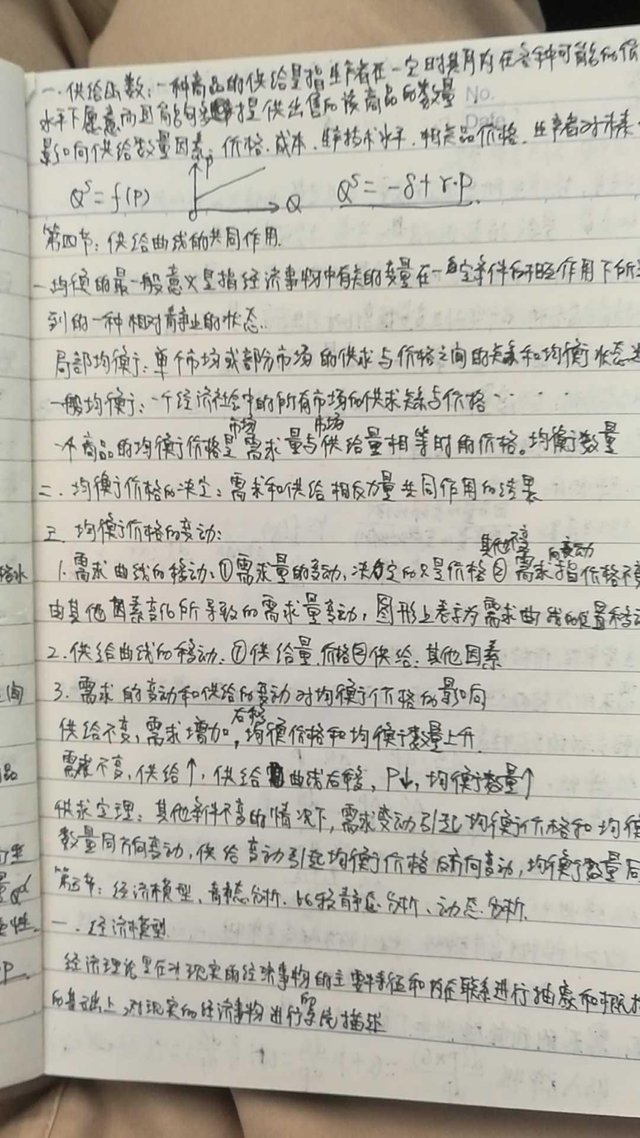 一.供给函数:一种商品的供给是指生产者在一定时期内在各种可能的价
水平下愿意而且能够提供出售的该商品的数量
No.
Date
影响供给数量因素:价格.成本.生产技术水平.相关品价格.生产者对未来
P
Qˢ=f(P)
0
Q
Qˢ=-δ+r·P
第四节:供给曲线的共同作用.
一均衡的最一般意义是指经济事物中有关的变量在一定条件的相互作用下所
到的一种相对静止的状态.
局部均衡:单个市场或部分市场的供求与价格之间的关系和均衡状态
一般均衡:一个经济社会中的所有市场的供求关系与价格·····
市场 市场
一个商品的均衡价格是需求量与供给量相等时的价格。均衡数量
二.均衡价格的决定:需求和供给相反力量共同作用的结果
三.均衡价格的变动:
其他不变 的变动
1.需求曲线的移动.①需求量的变动,决定的只是价格②需求指价格不变
由其他因素变化所导致的需求量变动,图形上表示为需求曲线的位置移动
2.供给曲线的移动.①供给量.价格②供给.其他因素
3.需求的变动和供给的变动对均衡价格的影响
右移
供给不变,需求增加,均衡价格和均衡数量上升.
需求不变,供给↑,供给曲线右移,P↓,均衡数量↑
供求定理:其他条件不变的情况下,需求变动引起均衡价格和均衡
数量同方向变动,供给变动引起均衡价格反方向变动,均衡数量同
第五节:经济模型、静态分析.比较静态分析、动态分析.
一.经济模型.
经济理论是在对现实的经济事物的主要特征和内在联系进行抽象和概括
的基础上,对现实的经济事物进行的系统描述
格水
间
品
量Qᵈ
性.
P